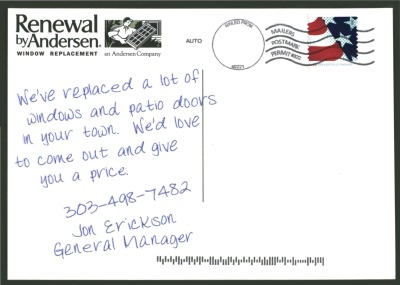 Renewal
by Andersen.
WINDOW REPLACEMENT
an Andersen Company
AUTO
MAILED FROM
MAILERS
POSTMARK
PERMIT
We've replaced a lot of
windows and patio doors
in your town. We'd love
to come out and give
you a price.
303-498-7482
Jon Erickson
General Manager